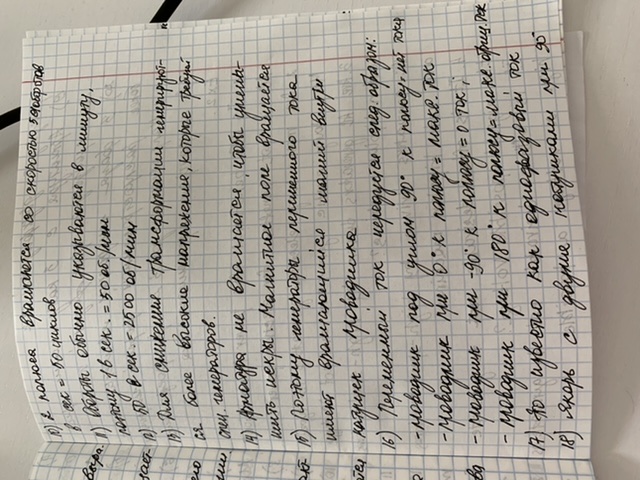 10) 2 полюса вращаются со скоростью 50 оборотов
в сек = 50 циклов
11) Оборты обычно указываются в минуту,
поэтому 1 в сек. = 50 об/мин
12) 50 в сек = 2500 об/мин
13) Для снижения трансформации генерируют-
ся более высокие напряжение, которые требуй
спец. генераторов.
14) Арматура не вращается, чтобы умень-
шить искры. Магнитное поле вращается
15) Поэтому генераторы переменного тока
имеют вращающийся магнит внутри
катушек проводника
16) Переменный ток чередуется след. образом:
- Проводник под углом 90° к полюсу = нет тока
- Проводник при 0° к полюсу = макс. ток
- Проводник при -90° к полюсу = 0 ток;
- Проводник при 180° к полюсу = макс. отриц. ток
17) Это известно как однофазовый ток
18) Якорь с двумя катушками при 90°